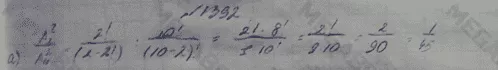 №1392
а) A₂² / A₁₀² = 2! / (2-2)! : 10! / (10-2)! = 2! · 8! / 1 · 10! = 2! / 9 10 = 2 / 90 = 1 / 45